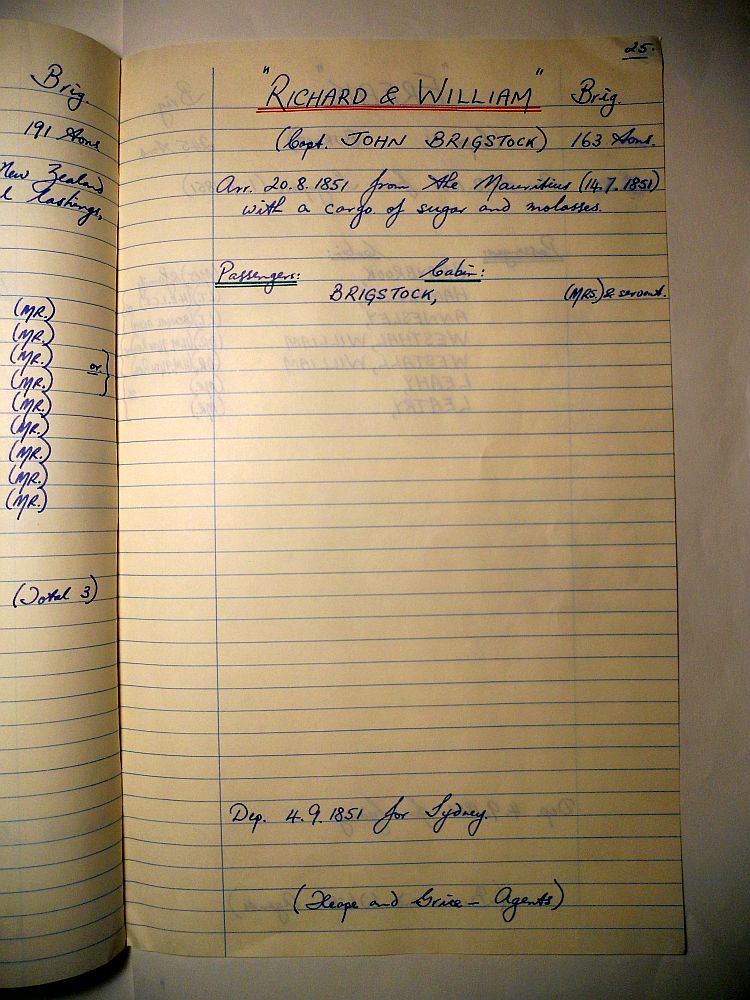 Brig.
191 tons
New Zealand
lashings,
(MR.)
(MR.)
(MR.) or
(MR.)
(MR.)
(MR.)
(MR.)
(MR.)
(MR.)
(Total 3)
25.
"RICHARD & WILLIAM" Brig.
(Capt. JOHN BRIGSTOCK) 163 tons.
Arr. 20.8.1851 from the Mauritius (14.7.1851)
with a cargo of sugar and molasses.
Passengers: Cabin:
BRIGSTOCK, (MRS.) & servant.
Dep. 4.9.1851 for Sydney.
(Heape and Grice - Agents)